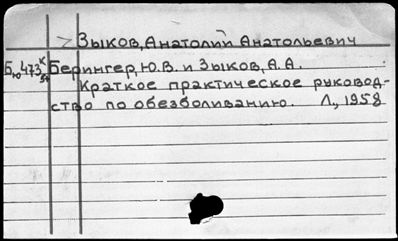 Зыков, Анатолий Анатольевич
Берингер, Ю.В. и Зыков, А.А.
Краткое практическое руковод-
ство по обезболиванию. Л., 1958